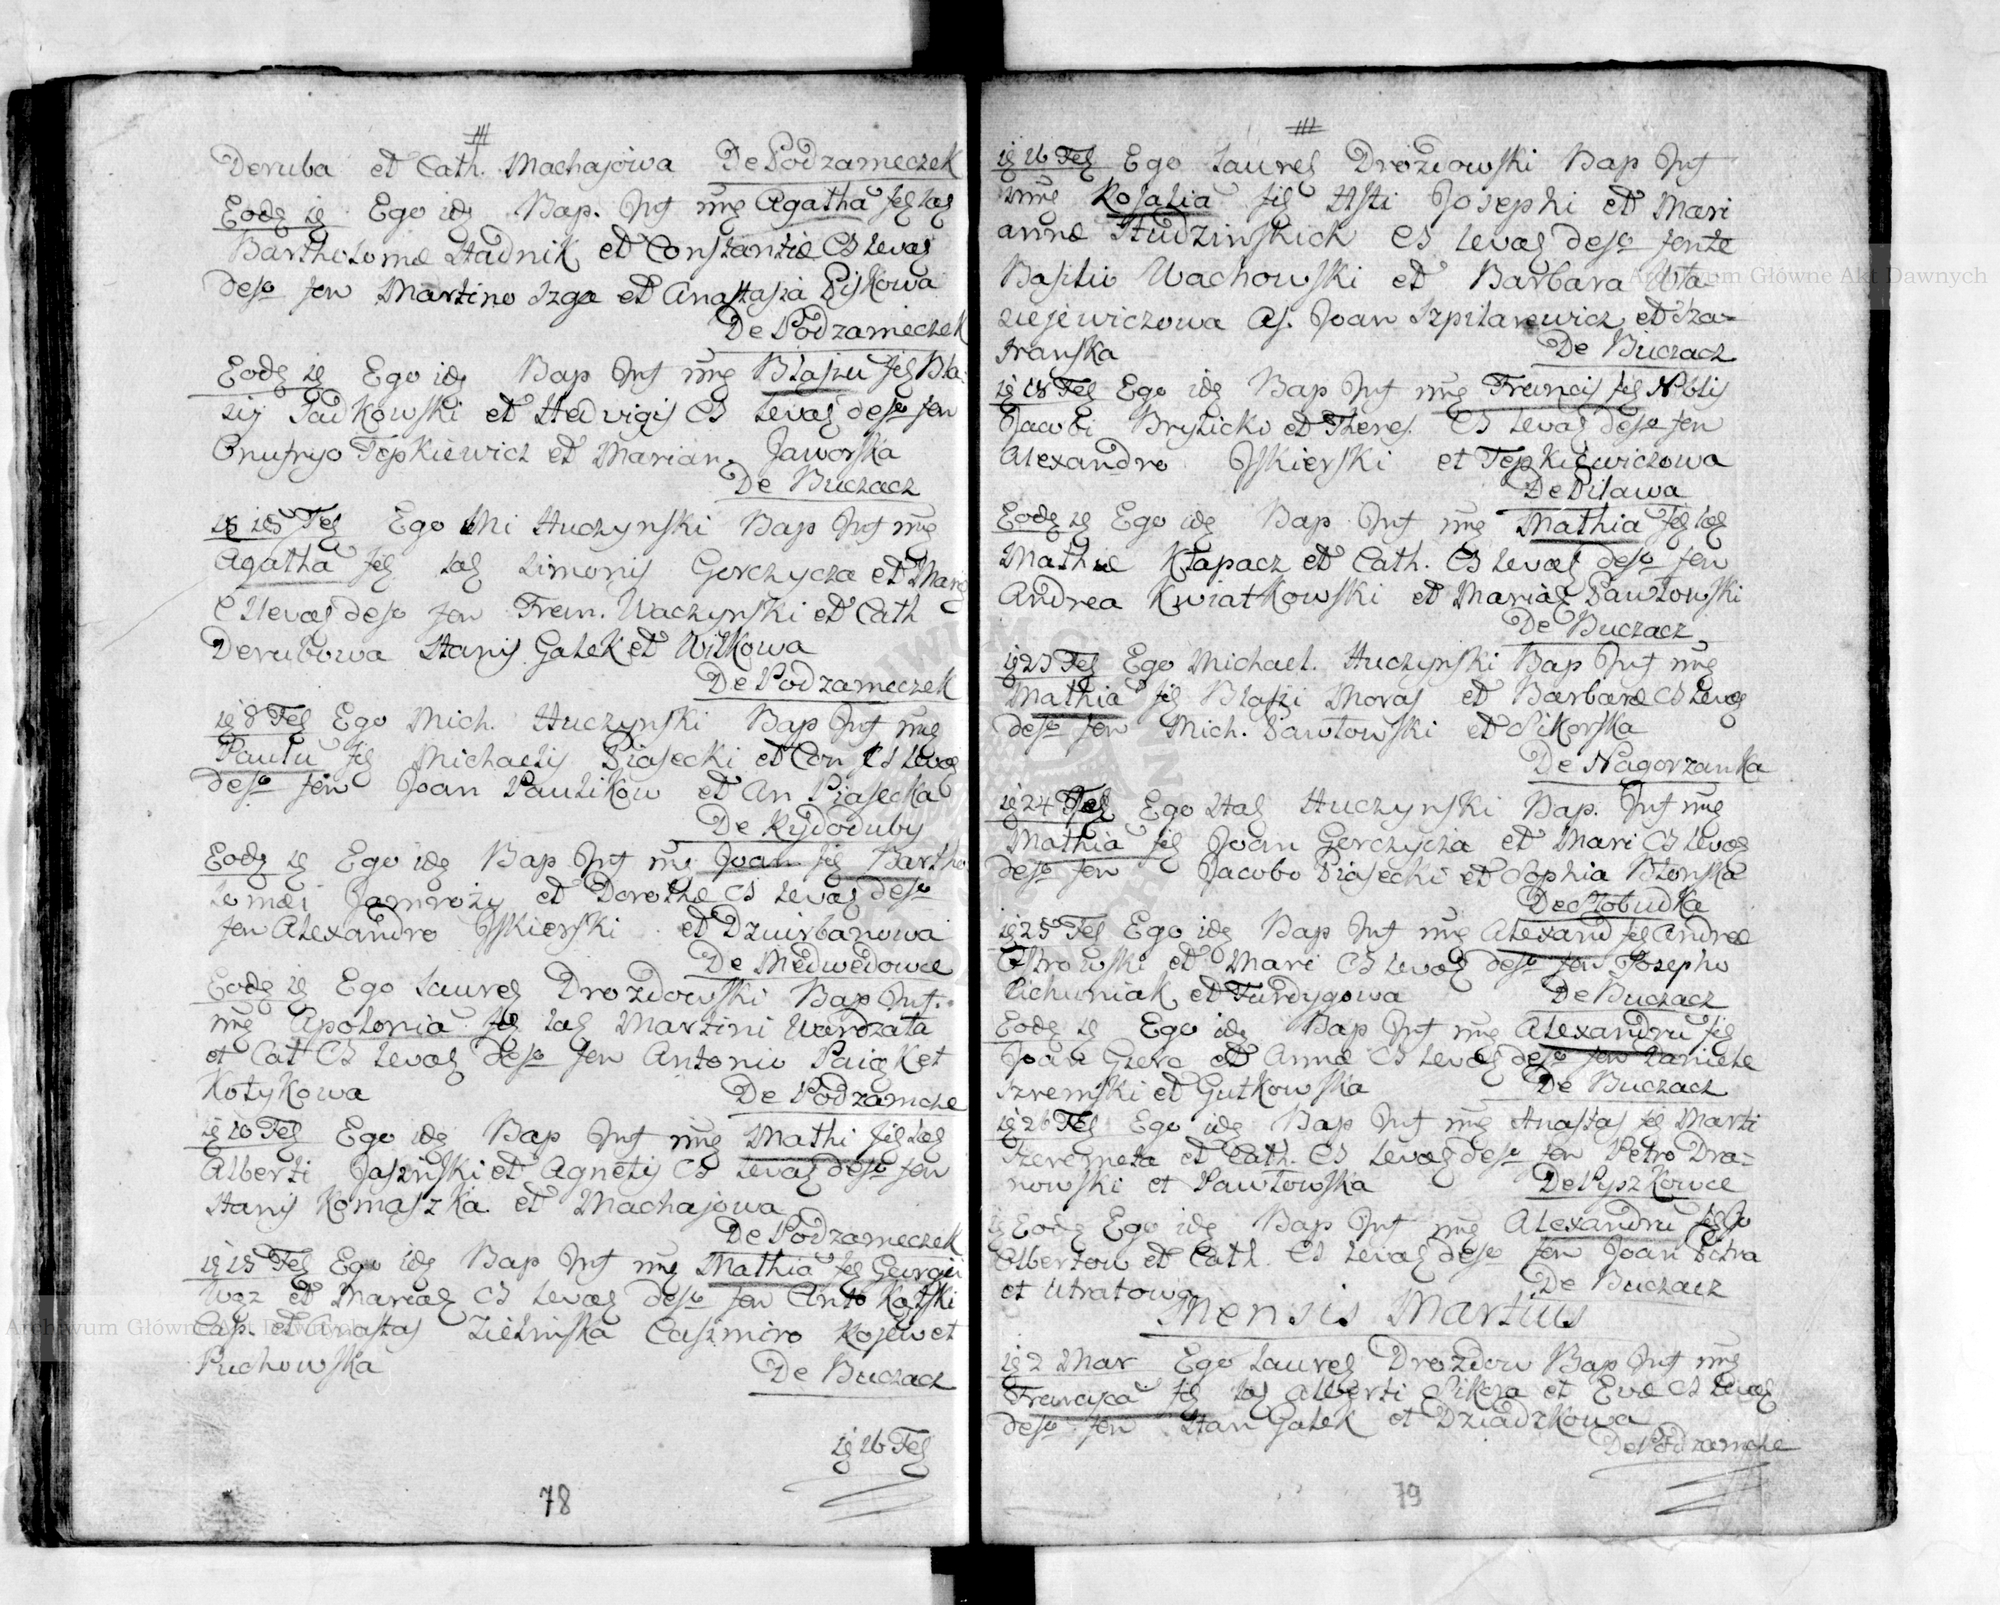 Deruba et Cath. Machajowa De Podzameczek
Eodē ie Ego idē Bap. Inf nne Agatha fil lab
Bartholomæ Stadnik et Constantiæ CS Levaē
deso fon Martino Izga et Anastazia Piskowa
De Podzameczek
Eodē ie Ego idē Bap Inf nne Blasiu fil Bla-
sij Sadkowski et Hedvigis CS Levaē deso fon
Onufryo Tepkiewicz et Marian. Jaworska
De Buczacz
Feb Ego Mi Huczynski Bap Inf nne
Agatha fil lab Simonis Gorczycza et Maria
CS Levaē deso fon Fran. Waczynski et Cath
Derubowa Stanis Galek et Wilkowa
De Podzameczek
ie 8 Feb Ego Mich. Huczynski Bap Inf nne
Paulu fil Michaelis Piasecki et Con CS Levaē
deso fon Joan Paulikow et An Piasecka
De Rydoduby
Eodē ie Ego idē Bap Inf nne Joan fil Bartho
lomæi Jamrozy et Dorothæ CS Levaē deso
fon Alexandro Iskierski et Dziurbanowa
De Medwedowce
Eodē ie Ego Laureē Drozdowski Bap Inf.
nne Apolonia fil lab Martini Wardzała
et Cat CS Levaē deso fon Antonio Paiąk et
Kotykowa De Podzamcze
ie 10 Feb Ego idē Bap Inf nne Mathi fil lab
Alberti Jasinski et Agnetis CS Levaē deso fon
Stanis Komaszka et Machajowa
De Podzameczek
ie 15 Feb Ego idē Bap Inf nne Mathia fil Georgii
Wąz et Mariaē CS Levaē deso fon Anto Kątski
Cap. et Anastas Zielinska Casimiro Kojew et
Puchowska De Buczacz
ie 16 Feb
78
ie 16 Feb Ego Laureē Drozdowski Bap Inf
nne Rosalia fil Josephi et Mari
annæ Studzinskich CS Levaē deso fonte
Basilio Wachowski et Barbara Wła-
ziejewiczowa As. Joan Szpilarewicz et Sza-
franska De Buczacz
ie 18 Feb Ego idē Bap Inf nne Francis fil Nblis
Jacobi Brylicki et Theres. CS Levaē deso fon
Alexandro Iskierski et Tepkiewiczowa
De Pilawa
Eodē ie Ego idē Bap Inf nne Mathia fil lab
Mathiæ Kłapacz et Cath. CS Levaē deso fon
Andrea Kwiatkowski et Mariaē Pawłowski
De Buczacz
ie 23 Feb Ego Michael. Huczynski Bap Inf nne
Mathia fil Blasii Moras et Barbaræ CS Levaē
deso fon Mich. Pawłowski et Sikorska
De Nagorzanka
ie 24 Feb Ego Huczynski Bap. Inf nne
Mathia fil Joan Gorczycza et Mari CS Levaē
deso fon Jacobo Piasecki et Sophia Błonska
De Słobudka
ie 25 Feb Ego idē Bap Inf nne Alexand fil Andreæ
Ostrowski et Mari CS Levaē deso fon Josepho
Cichuniak et Furdygowa De Buczacz
Eodē ie Ego idē Bap Inf nne Alexandru fil
Joan Giera et Annæ CS Levaē deso fon Daniele
Szremski et Gutkowska De Buczacz
ie 26 Feb Ego idē Bap Inf nne Anastas fil Marti
Szeremeta et Cath. CS Levaē deso fon Petro Dra-
nowski et Pawłowska De Pyszkowce
ie Eodē Ego idē Bap Inf nne Alexandru fil Jo
Alberton et Cath. CS Levaē deso fon Joan
et Utratowa De Buczacz
Mensis Martius
ie 2 Mar Ego Laureē Drozdow Bap Inf nne
Francisca fil lab Alberti Sikora et Evæ CS Levaē
deso fon Stan Galek et Dziadzkowa
De Podzamcze
79
Archiwum Główne Akt Dawnych
Archiwum Główne Akt Dawnych